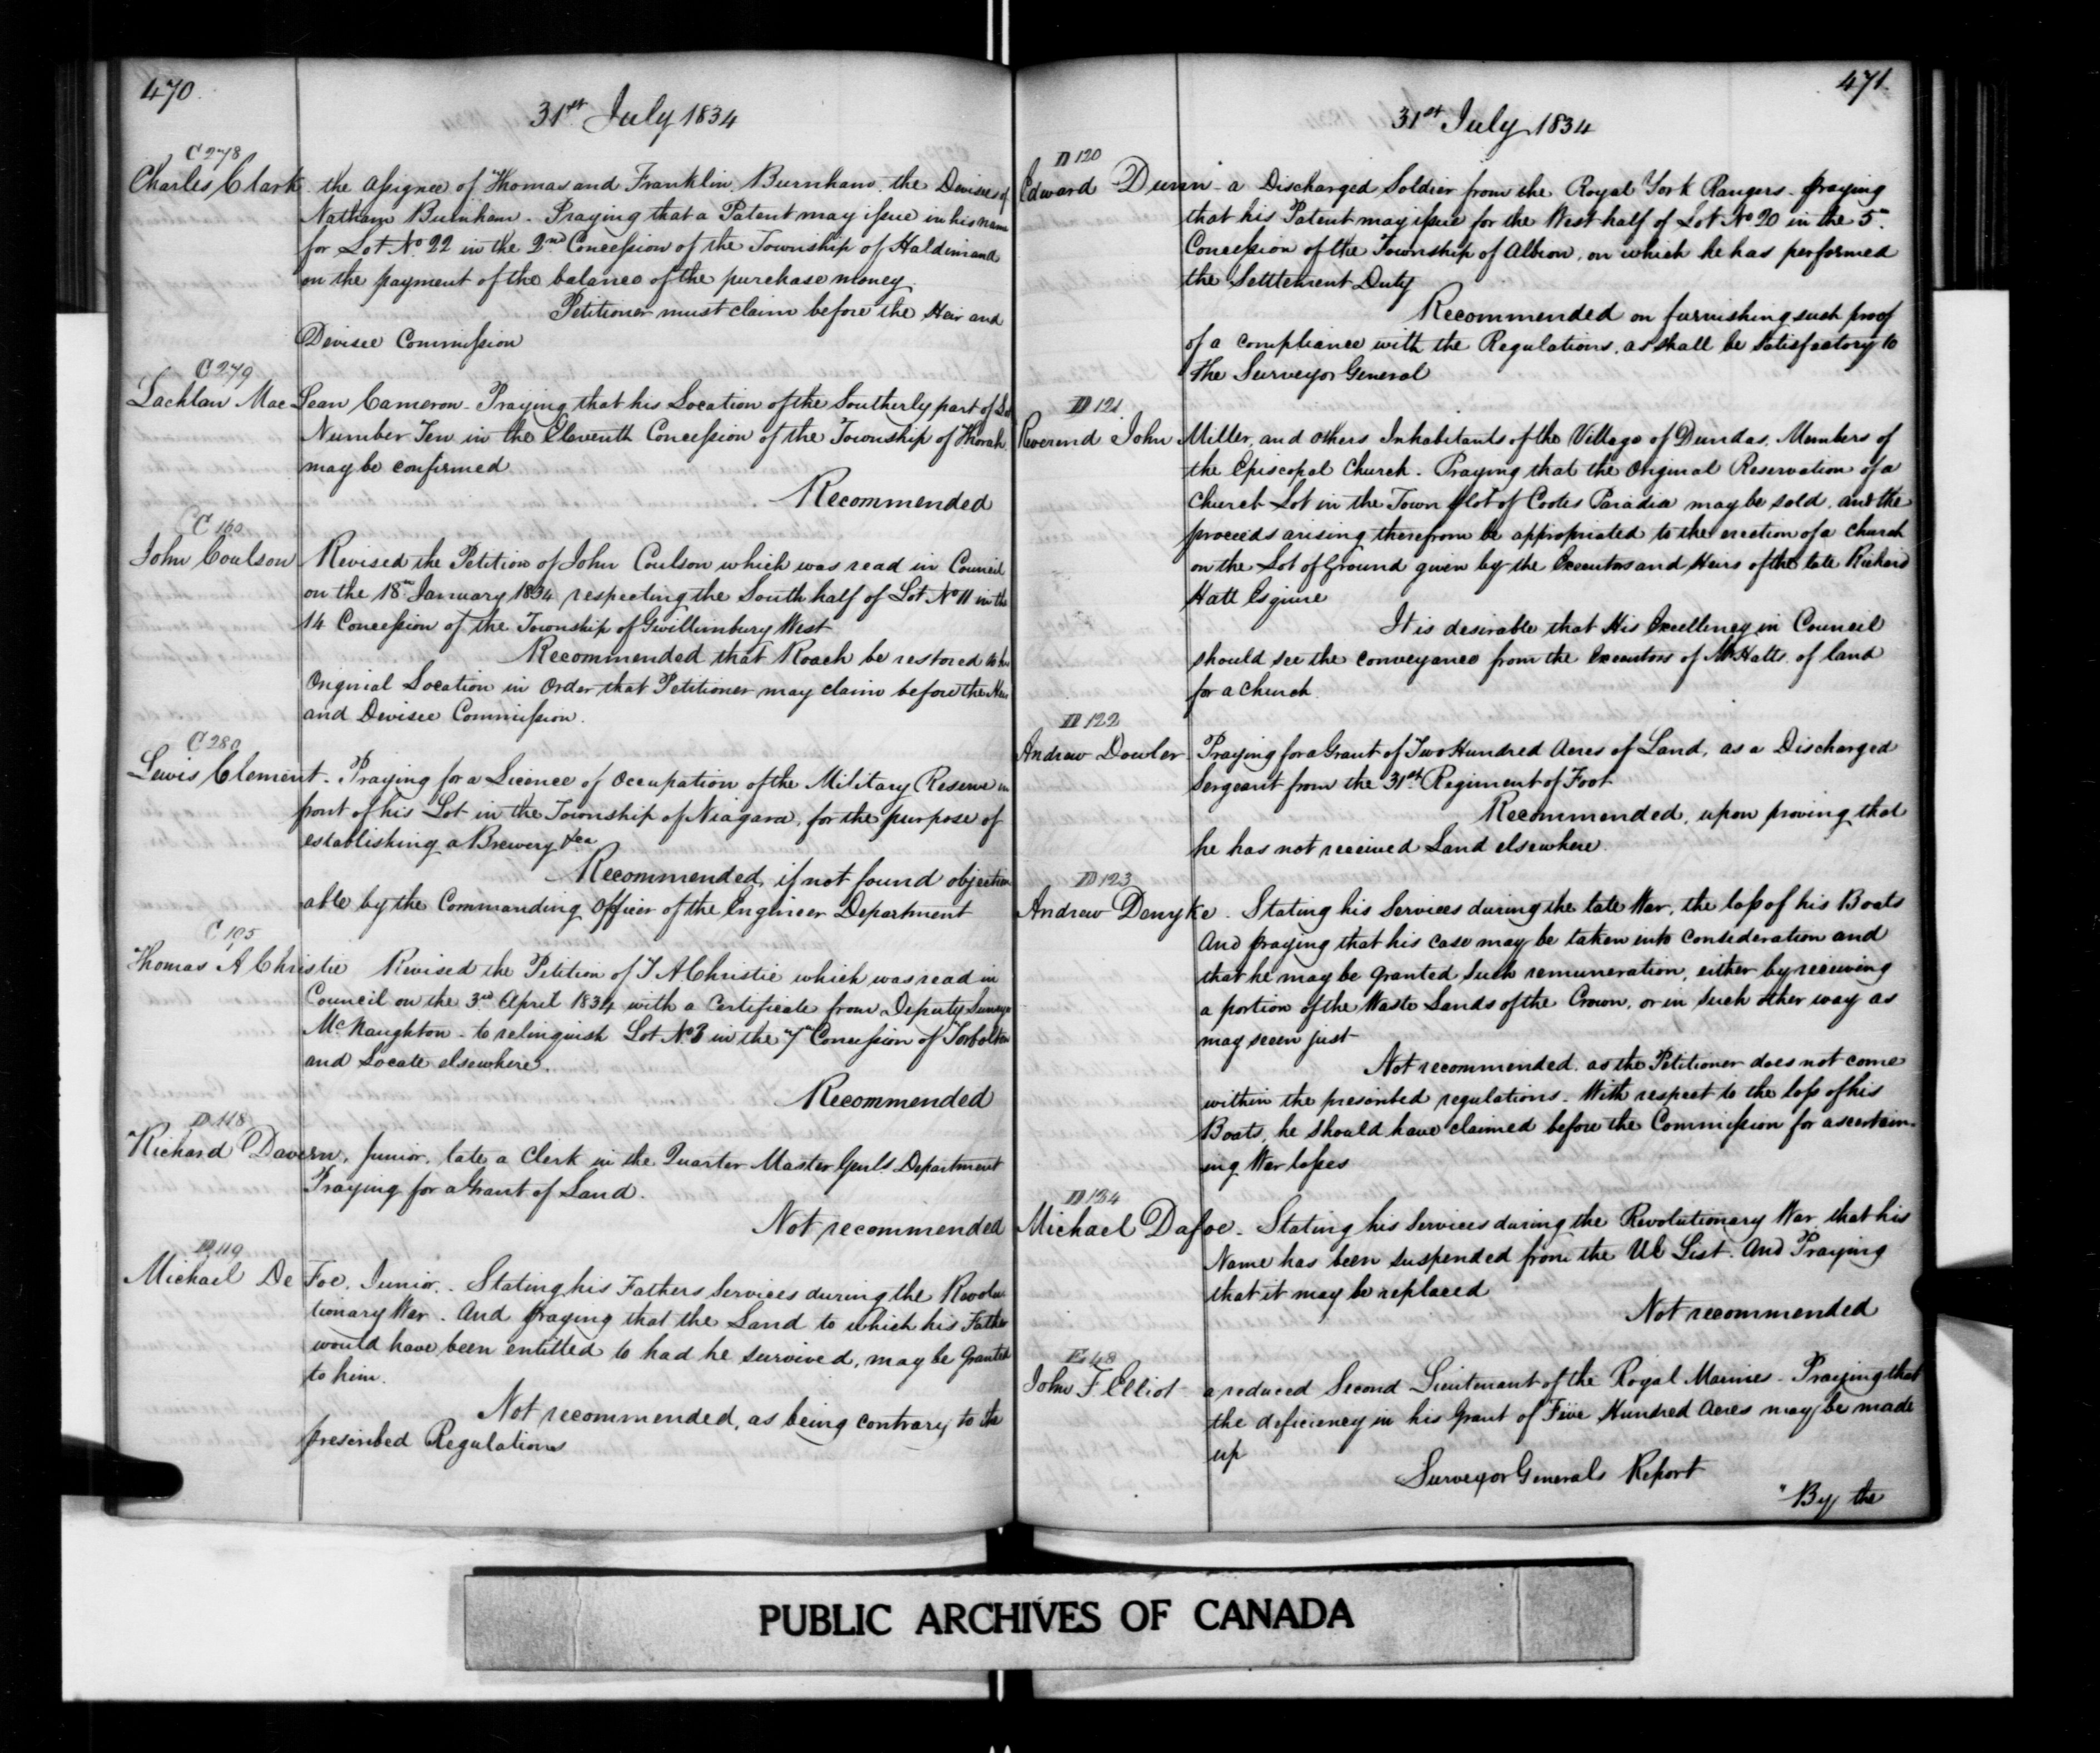 470.
31st July 1834
C 278
Charles Clark the Assignee of Thomas and Franklin Burnham the Devisees of
Nathan Burnham - Praying that a Patent may issue in his name
for Lot No 22 in the 2nd Concession of the Township of Haldimand
on the payment of the balance of the purchase money
Petitioner must claim before the Heir and
Devisee Commission
C 279
Lachlan MacLean Cameron - Praying that his Location of the Southerly part of Lot
Number Ten in the Eleventh Concession of the Township of Thorah
may be confirmed
Recommended
C 160
John Coulson Revised the Petition of John Coulson which was read in Council
on the 18th January 1834 respecting the South half of Lot No 11 in the
14 Concession of the Township of Gwillimbury West
Recommended that Roach be restored to his
Original Location in Order that Petitioner may claim before the Heir
and Devisee Commission.
C 280
Lewis Clement - Praying for a Licence of Occupation of the Military Reserve in
front of his Lot in the Township of Niagara, for the purpose of
establishing a Brewery &ca
Recommended, if not found objection
able by the Commanding Officer of the Engineer Department
C 105
Thomas A Christie Revised the Petition of T A Christie which was read in
Council on the 3rd April 1834 with a Certificate from Deputy Surveyor
McNaughton - to relinquish Lot No 3 in the 7th Concession of Torbolton
and Locate elsewhere.
Recommended
D 118
Richard Davern, Junior, late a Clerk in the Quarter Master Genls Department
Praying for a Grant of Land.
Not recommended
D 119
Michael De Foe, Junior. - Stating his Fathers Services during the Revolu
tionary War. And praying that the Land to which his Father
would have been entitled to had he survived, may be Granted
to him.
Not recommended, as being contrary to the
prescribed Regulations
471.
31st July 1834
D 120
Edward Dunn - a Discharged Soldier from the Royal York Rangers - praying
that his Patent may issue for the West half of Lot No 20 in the 5th
Concession of the Township of Albion, on which he has performed
the Settlement Duty
Recommended on furnishing such proof
of a compliance with the Regulations, as shall be Satisfactory to
the Surveyor General
D 121
Reverend John Miller, and others Inhabitants of the Village of Dundas, Members of
the Episcopal Church - Praying that the Original Reservation of a
Church Lot in the Town plot of Cootes Paradia may be sold, and the
proceeds arising therefrom be appropriated to the erection of a Church
on the Lot of Ground given by the Executors and Heirs of the late Richard
Hatt Esquire
It is desirable that His Excellency in Council
should see the conveyance from the Executors of Mr Hatts of land
for a Church
D 122
Andrew Dowler Praying for a Grant of Two Hundred Acres of Land, as a Discharged
Sergeant from the 31st Regiment of Foot
Recommended, upon proving that
he has not received Land elsewhere.
D 123
Andrew Denyke. Stating his Services during the late War, the loss of his Boats
And praying that his case may be taken into consideration and
that he may be granted such remuneration, either by receiving
a portion of the Waste Lands of the Crown, or in such other way as
may seem just
Not recommended, as the Petitioner does not come
within the prescribed regulations - With respect to the loss of his
Boats, he should have claimed before the Commission for ascertain-
ing War losses
D 134
Michael Dafoe - Stating his Services during the Revolutionary War, that his
Name has been suspended from the UE List. And Praying
that it may be replaced
Not recommended
E 48
John F Elliot - a reduced Second Lieutenant of the Royal Marines - Praying that
the deficiency in his Grant of Five Hundred Acres may be made
up
Surveyor Generals Report
"By the
PUBLIC ARCHIVES OF CANADA